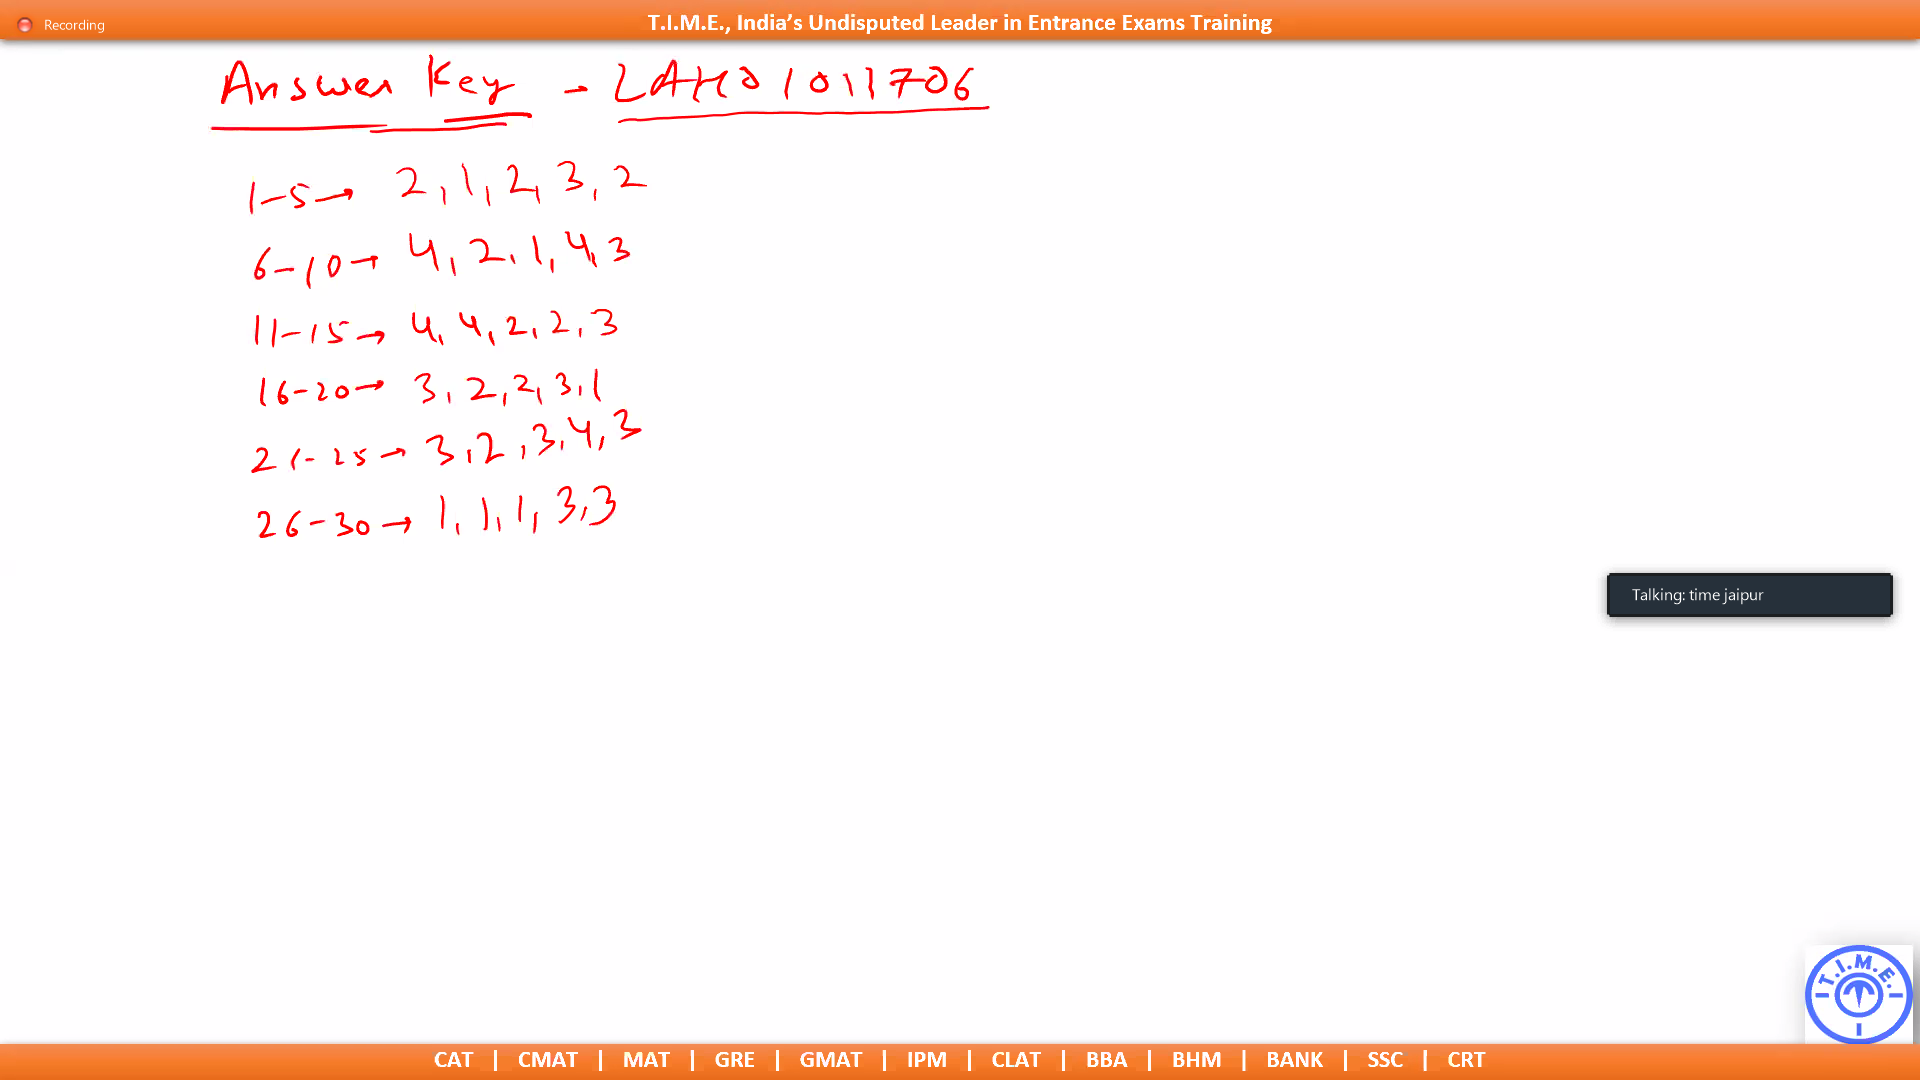 Recording
T.I.M.E., India's Undisputed Leader in Entrance Exams Training
Answer Key - LAH01011706
1-5→ 2, 1, 2, 3, 2
6-10→ 4, 2, 1, 4, 3
11-15→ 4, 4, 2, 2, 3
16-20→ 3, 2, 2, 3, 1
21-25→ 3, 2, 3, 4, 3
26-30→ 1, 1, 1, 3, 3
Talking: time jaipur
T.I.M.E.
CAT | CMAT | MAT | GRE | GMAT | IPM | CLAT | BBA | BHM | BANK | SSC | CRT